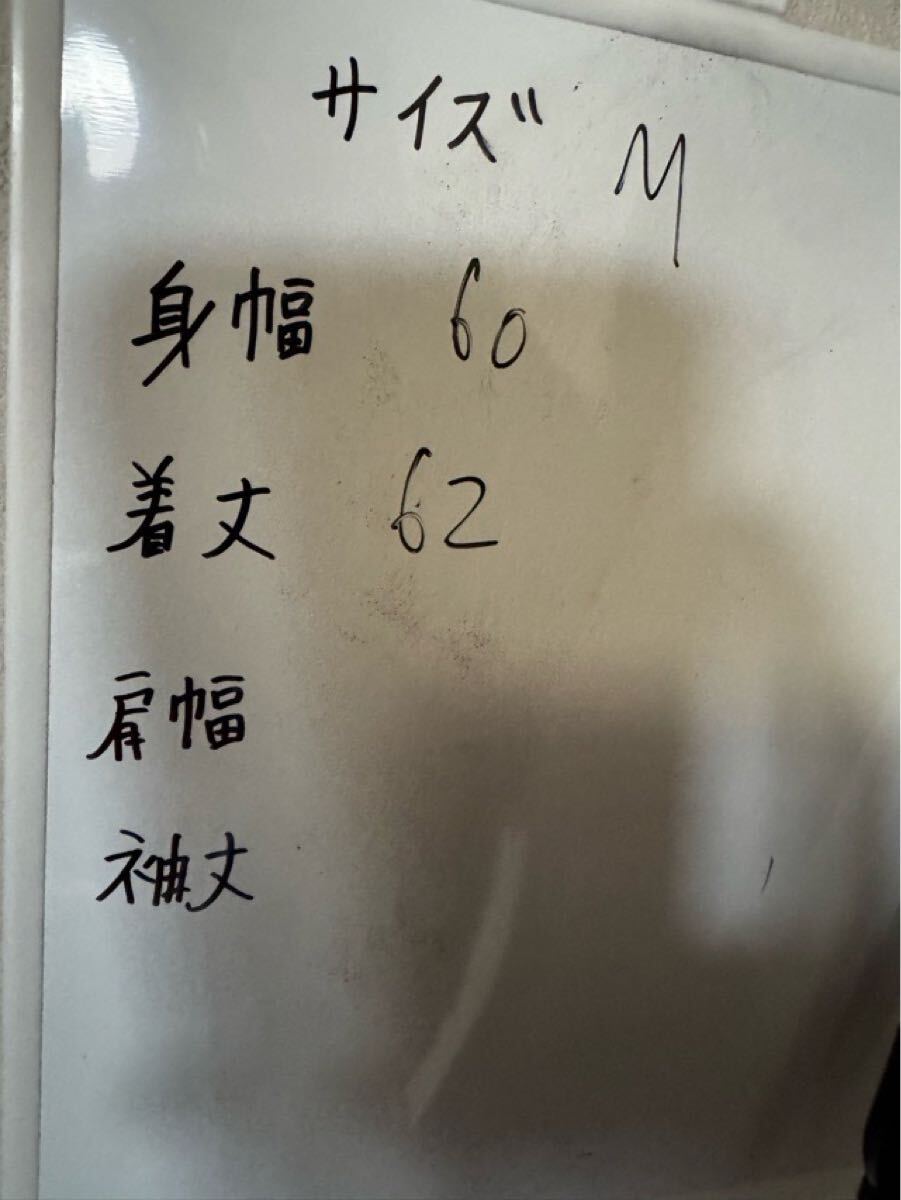 サイズ M
身幅 60
着丈 62
肩幅
袖丈